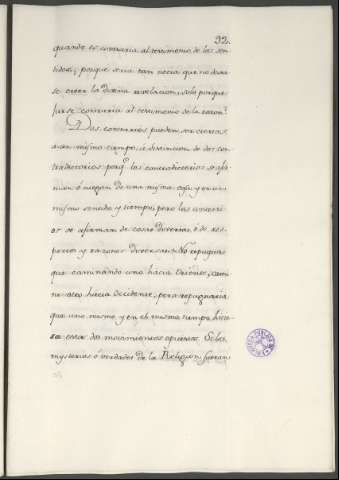 92.
quando es contraria al testimonio de los sen-
tidos; porque seria tan necia que no deva
se creer la Divina revelacion solo porque
fuese contraria al testimonio de la razon?
Dos contrarios pueden ser ciertos
a un mismo tiempo, a distincion de dos con
tradictorios porq.e las contradictorios se afir
man ó niegan de una misma cosa y en un
mismo sentido, y tiempo; pero los contrari-
os se afirman de cosas diversas, ó de res-
pectos y razones diversas. No repugna
que caminando uno hacia Oriente, cami
ne otro hacia Occidente, pero repugnaria
que uno mismo, y en el mismo tiempo hicie
ra esos dos movimientos opuestos. Si los
mysterios ó verdades de la Religion fueran